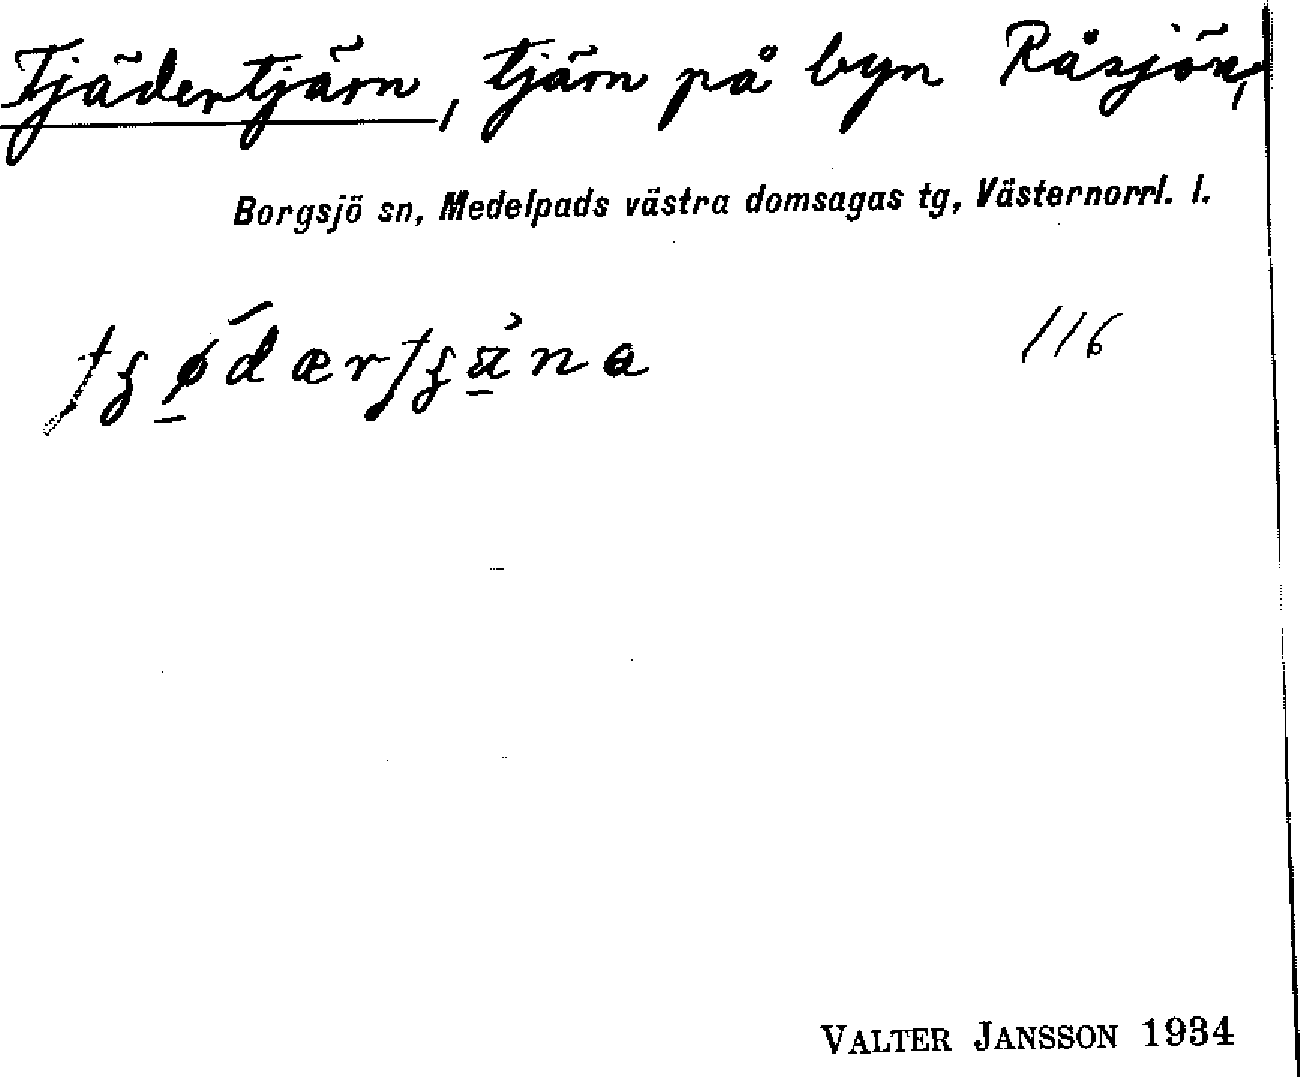 Tjädertjärn, tjärn på byn Råsjön,
Borgsjö sn, Medelpads västra domsagas tg, Västernorrl. l.
116
VALTER JANSSON 1934